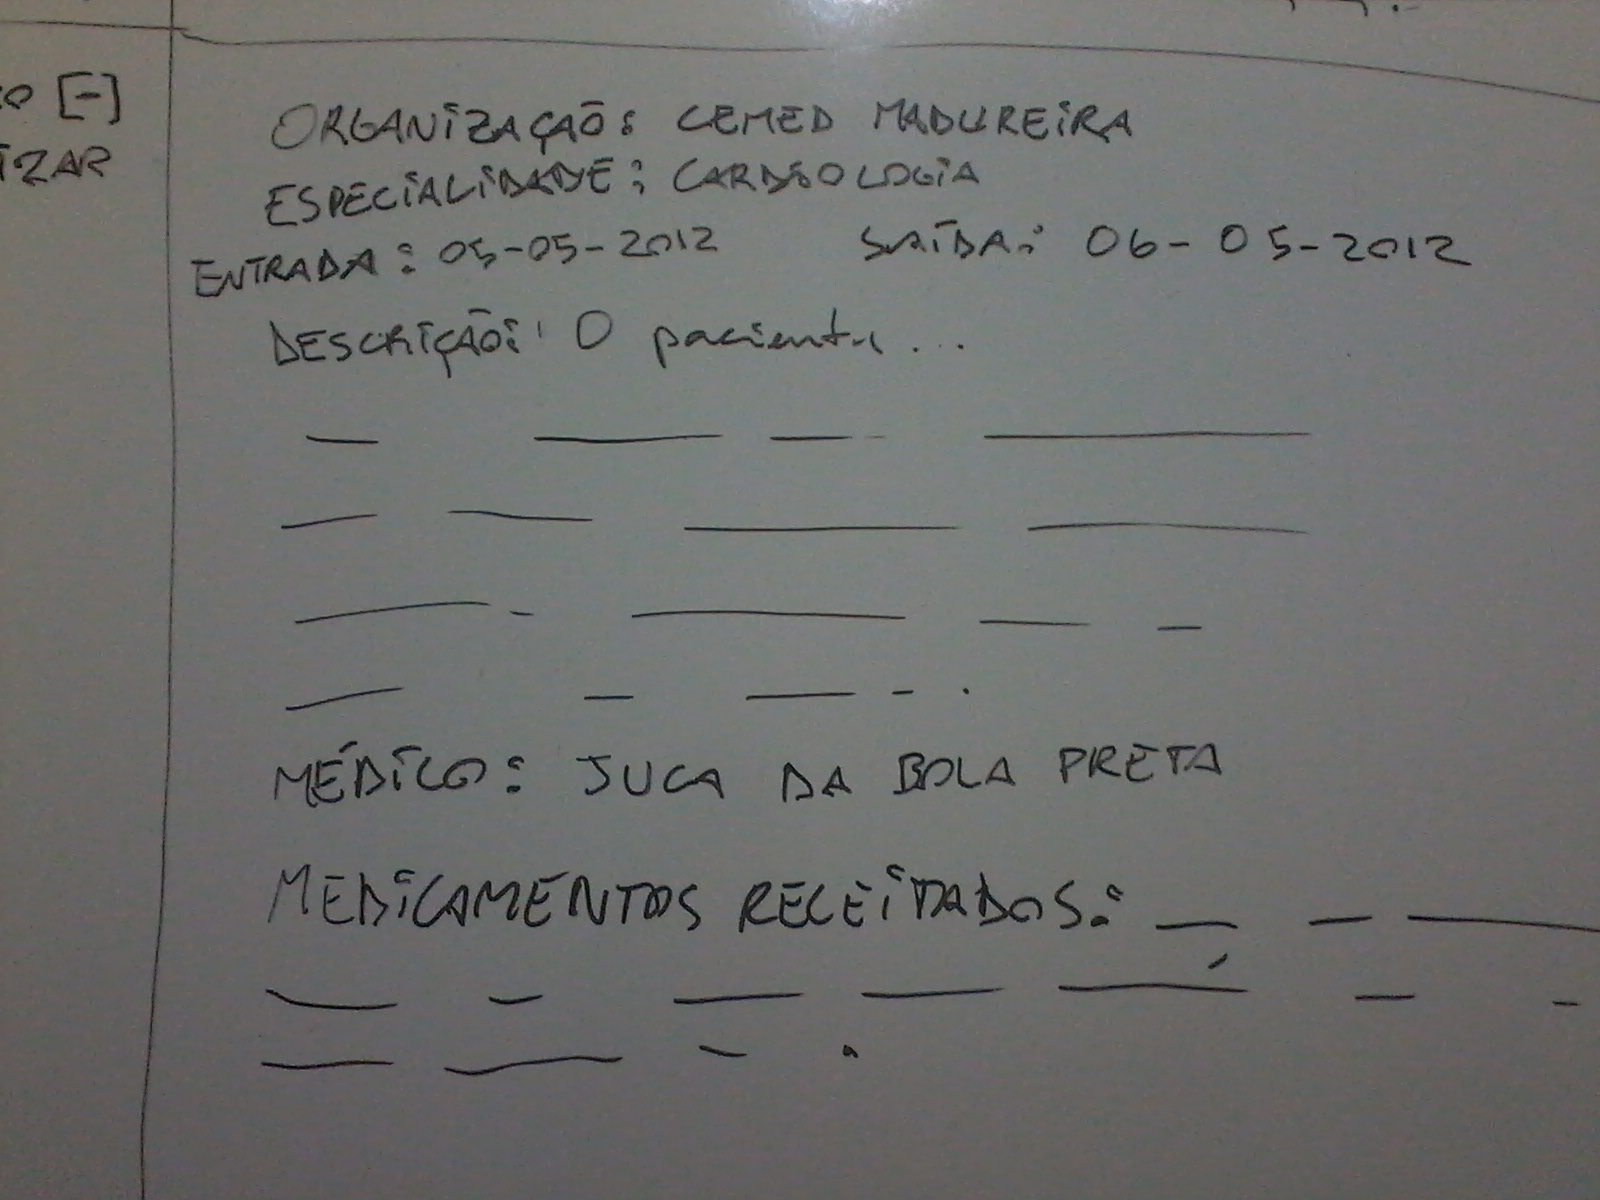 [-]
IZAR
ORGANIZAÇÃO: CEMED MADUREIRA
ESPECIALIDADE: CARDIOLOGIA
ENTRADA: 05-05-2012 SAÍDA: 06-05-2012
DESCRIÇÃO: O paciente...
MÉDICO: JUCA DA BOLA PRETA
MEDICAMENTOS RECEITADOS: